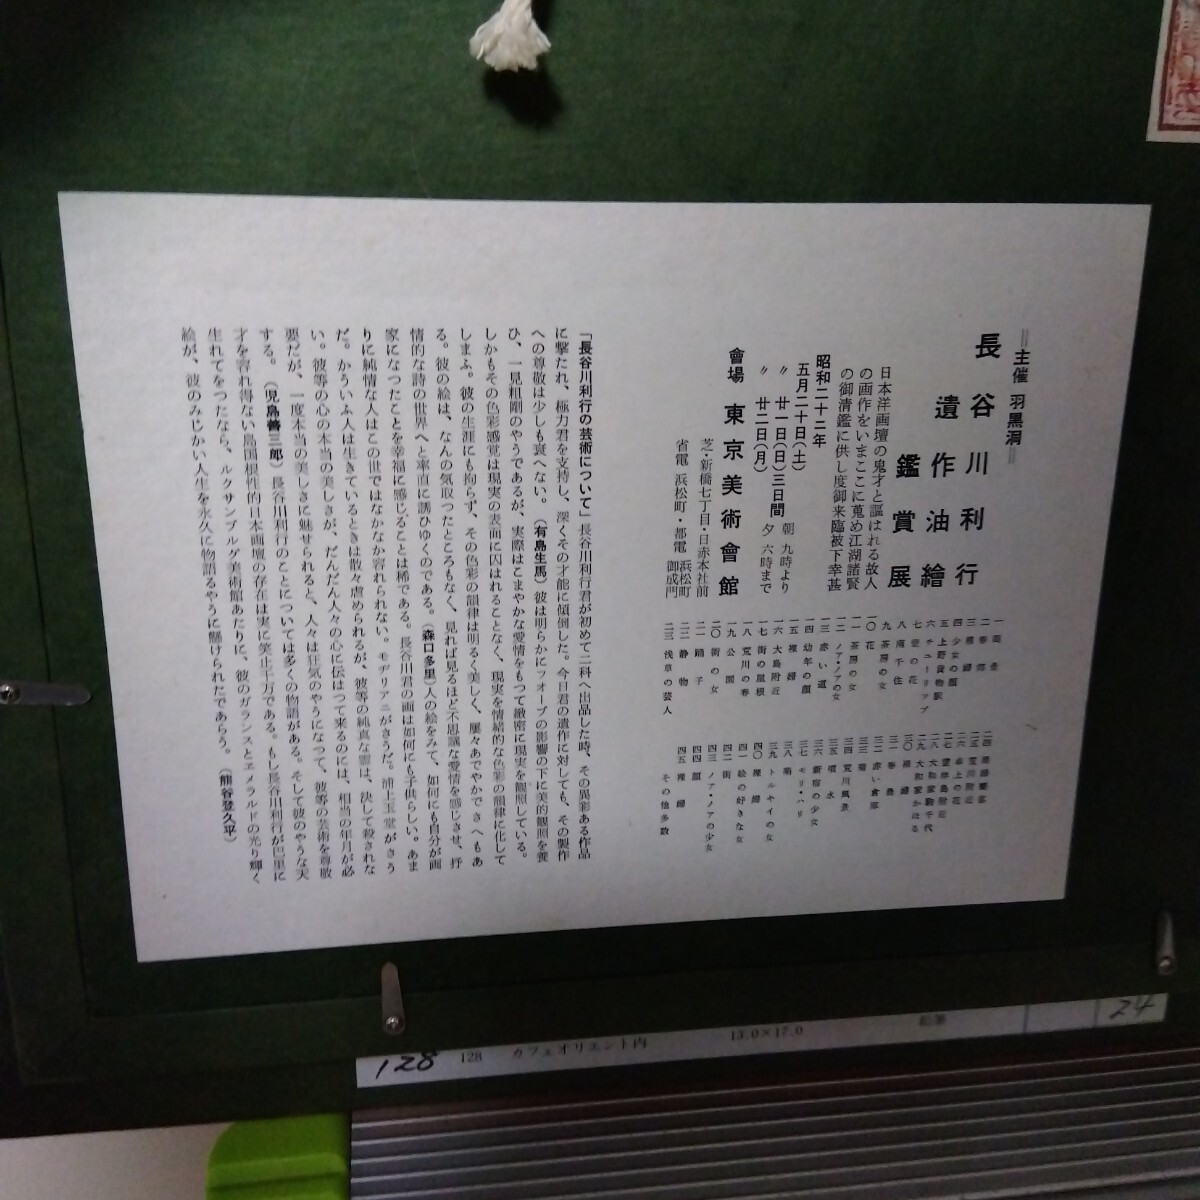 主催 羽黒洞
長谷川利行
遺作油繪
鑑賞展
日本洋画壇の鬼才と謳はれる故人
の画作をいまここに蒐め江湖諸賢
の御清鑑に供し度御来臨被下幸甚
昭和二十二年
五月二十日(土)
〃 廿一日(日)三日間 朝 九時より
〃 廿二日(月) 夕 六時まで
會場 東京美術會館
芝・新橋七丁目・日赤本社前
省電 浜松町・都電 浜松町 御成門
二 春郊
三 裸婦
四 少女の顔
五 上野貨物駅
六 チューリップ
七 壺の花
八 南千住
九 茶房の女
一〇 花
一一 茶房の女
一二 ノア・ノアの女
一三 赤い道
一四 幼年の顔
一五 裸婦
一六 大島附近
一七 街の屋根
一八 荒川の春
一九 公園
二〇 街の女
二一 踊子
二二 静物
二三 浅草の芸人
二五 荒川附近
二六 卓上の花
二七 霊岸島附近
二八 大和家駒千代
二九 大和家かほる
三〇 裸婦
三二 赤い倉庫
三四 荒川風景
三五 噴水
三六 新宿の少女
三七 モリ・ハリ
三九 トルヤイの女
四〇 裸婦
四一 絵の好きな女
四二 街
四三 ノア・ノアの少女
四四 顔
四五 裸婦
その他多数
「長谷川利行の芸術について」長谷川利行君が初めて二科へ出品した時、その異彩ある作品
に撃たれ、極力君を支持し、深くその才能に傾倒した。今日君の遺作に対しても、その製作
への尊敬は少しも衰へない。(有島生馬)彼は明らかにフォーブの影響の下に美的観照を養
ひ、一見粗剛のやうであるが、実際はこまやかな愛情をもつて緻密に現実を観照している。
しかもその色彩感覚は現実の表面に囚はれることなく、現実を情緒的な色彩の韻律に化して
しまふ。彼の生涯にも拘らず、その色彩の韻律は明るく美しく、屡々あでやかでさへもあ
る。彼の絵は、なんの気取つたところもなく、見れば見るほど不思議な愛情を感じさせ、抒
情的な詩の世界へと率直に誘ひゆくのである。(森口多里)人の絵をみて、如何にも自分が画
家になつたことを幸福に感じることは稀である。長谷川君の画は如何にも子供らしい。あま
りに純情な人はこの世ではなかなか容れられない。モヂリアニがさうだ。浦上玉堂がさう
だ。かういふ人は生きているときは散々虐められるが、彼等の純真な霊は、決して殺されな
い。彼等の心の本当の美しさが、だんだん人々の心に伝はつて来るのには、相当の年月が必
要だが、一度本当の美しさに魅せられると、人々は狂気のやうになつて、彼等の芸術を尊敬
する。(児島善三郎)長谷川利行のことについては多くの物語がある。そして彼のやうな天
才を容れ得ない島国根性的日本画壇の存在は実に笑止千万である。もし長谷川利行が巴里に
生れてをつたなら、ルクサンブルグ美術館あたりに、彼のガランスとエメラルドの光り輝く
絵が、彼のみじかい人生を永久に物語るやうに懸けられたであらう。(熊谷登久平)
128 128 カフェオリエント内 13.0×17.0 鉛筆 24